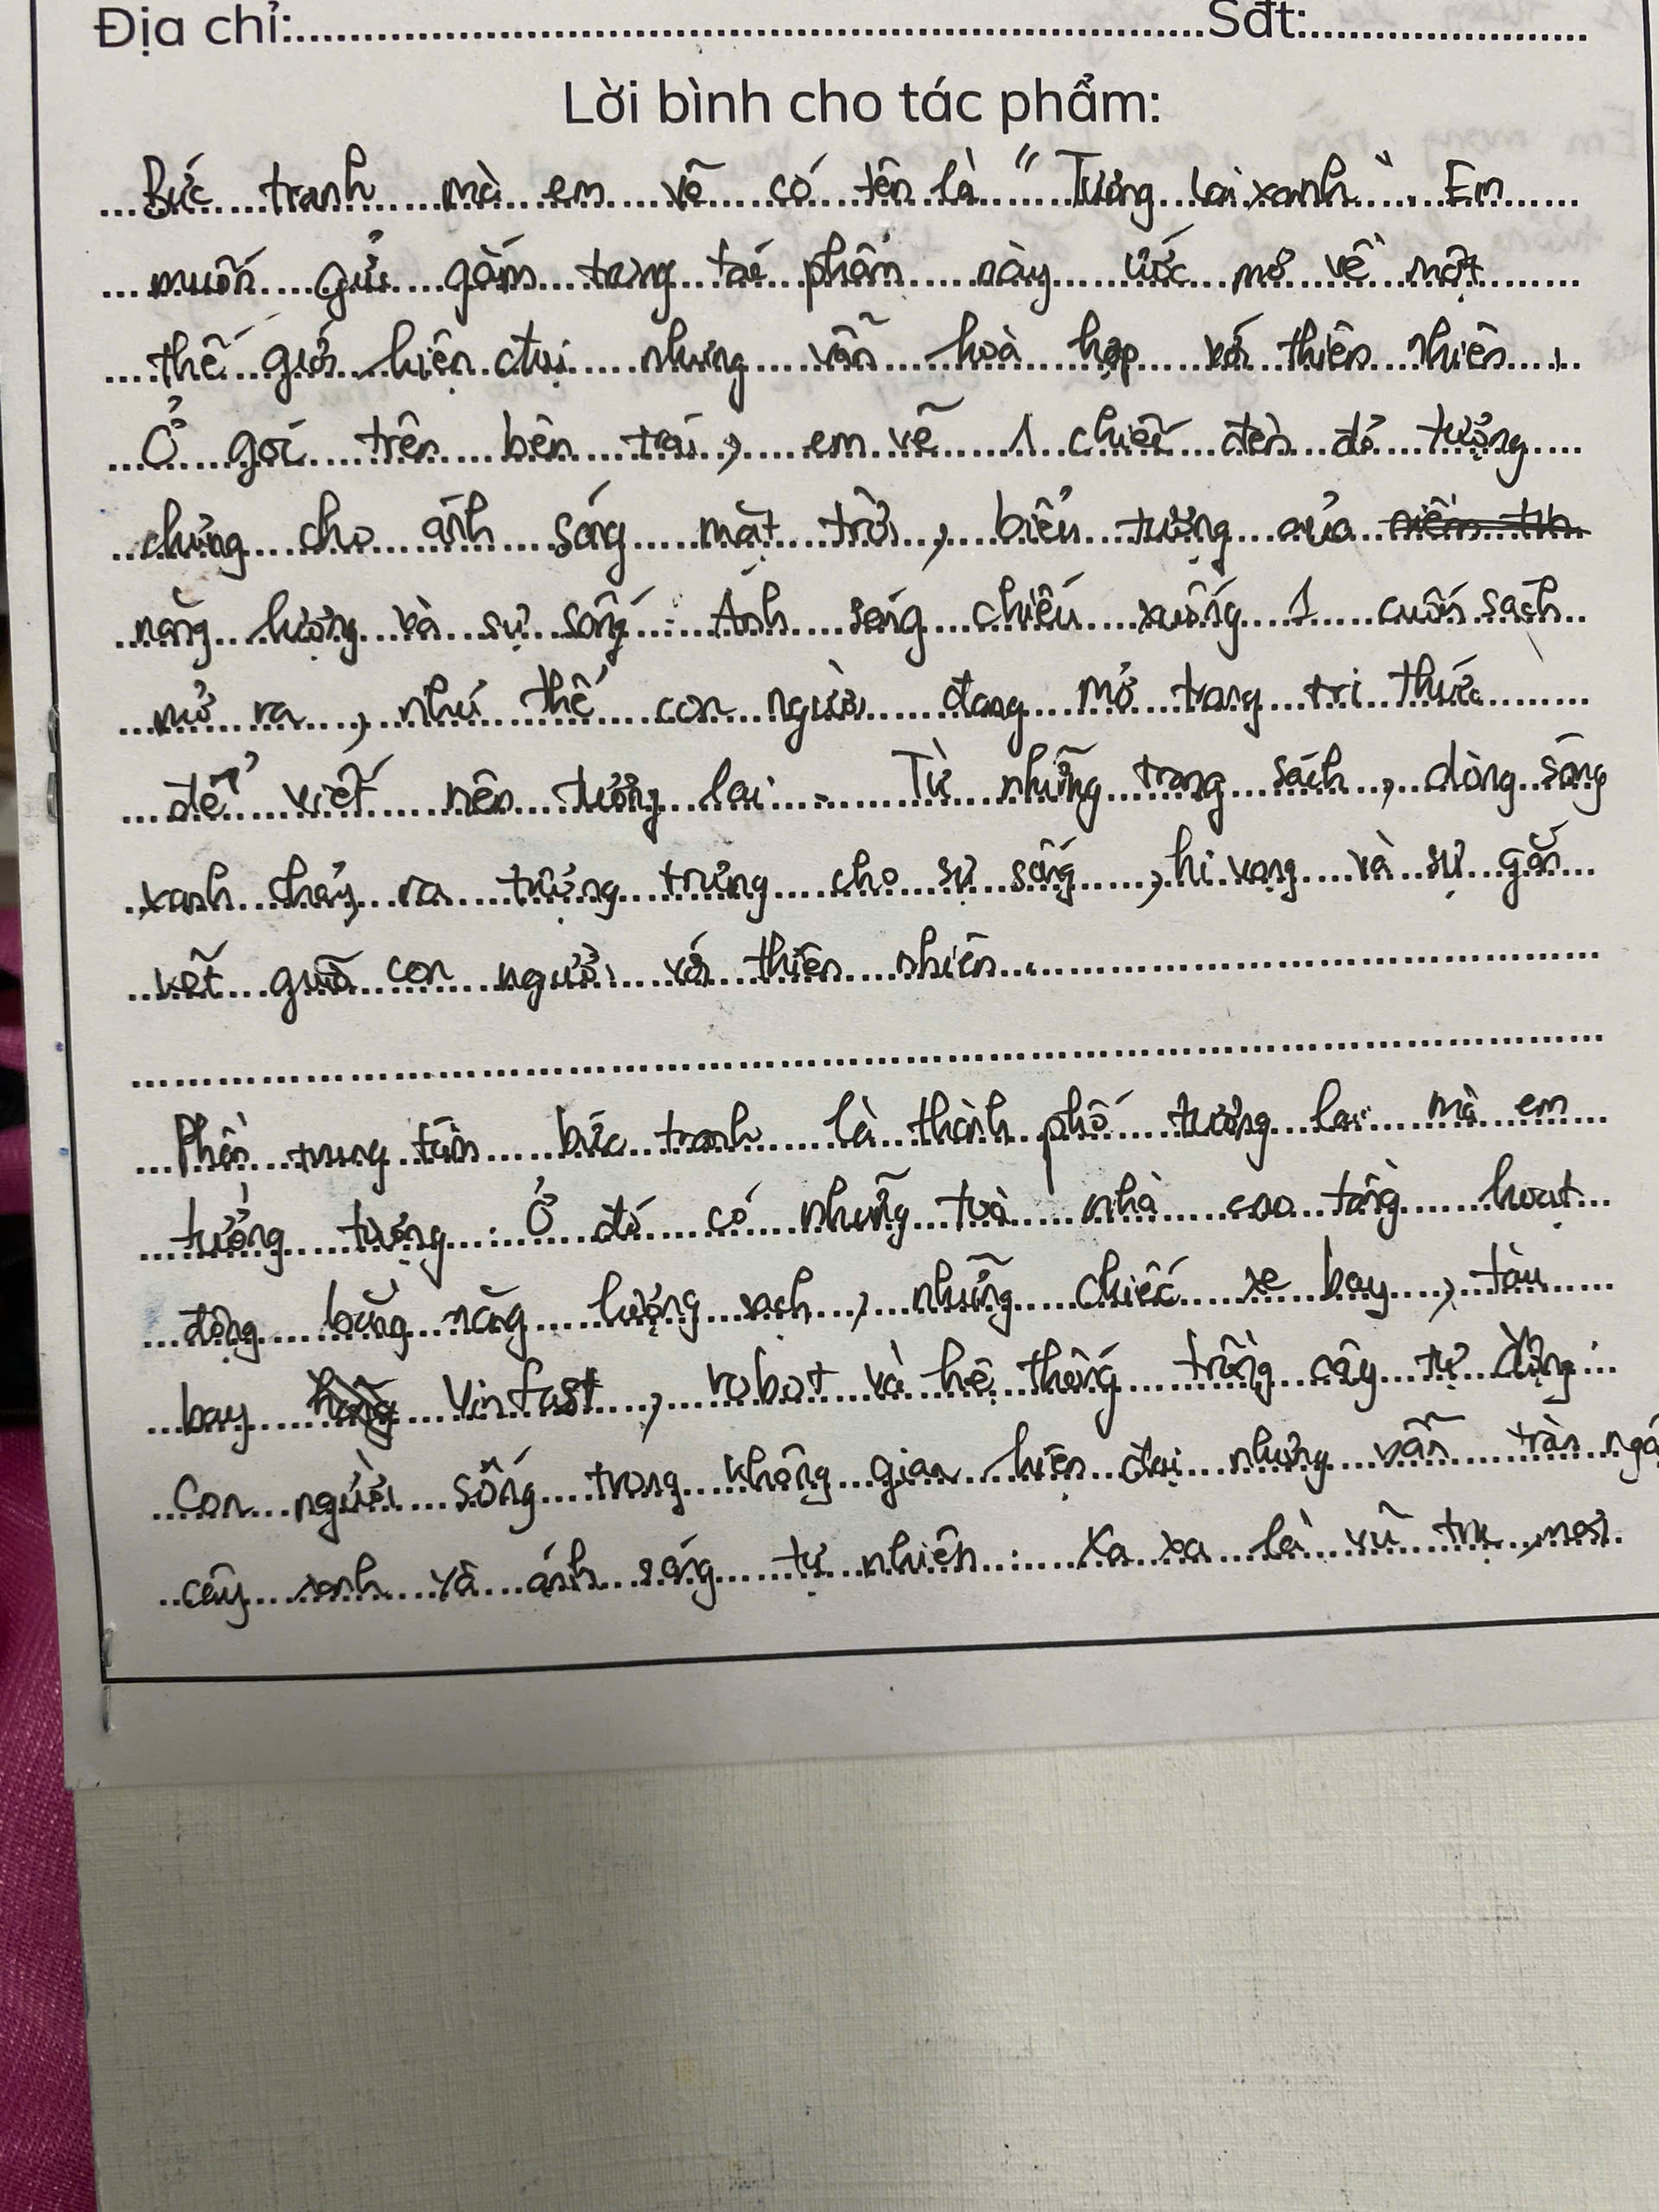 Địa chỉ:..............................Sđt:....................
Lời bình cho tác phẩm:
Bức tranh mà em vẽ có tên là "Tương lai xanh". Em
muốn gửi gắm trong tác phẩm này ước mơ về một
thế giới hiện đại nhưng vẫn hoà hợp với thiên nhiên.
Ở góc trên bên trái, em vẽ 1 chiếc đèn đỏ tượng
chưng cho ánh sáng mặt trời, biểu tượng của
năng lượng và sự sống. Ánh sáng chiếu xuống 1 cuốn sách
mở ra, như thế con người đang mở trang tri thức
để viết nên tương lai. Từ những trang sách, dòng sông
xanh chảy ra tượng trưng cho sự sống, hi vọng và sự gắn
kết giữa con người với thiên nhiên.
Phần trung tâm bức tranh là thành phố tương lai mà em
tưởng tượng. Ở đó có những toà nhà cao tầng hoạt
động bằng năng lượng sạch, những chiếc xe bay, tàu
bay Vinfast, robot và hệ thống trồng cây tự động.
Con người sống trong không gian hiện đại nhưng vẫn tràn
cây xanh và ánh sáng tự nhiên. Xa xa là vũ trụ, nơi